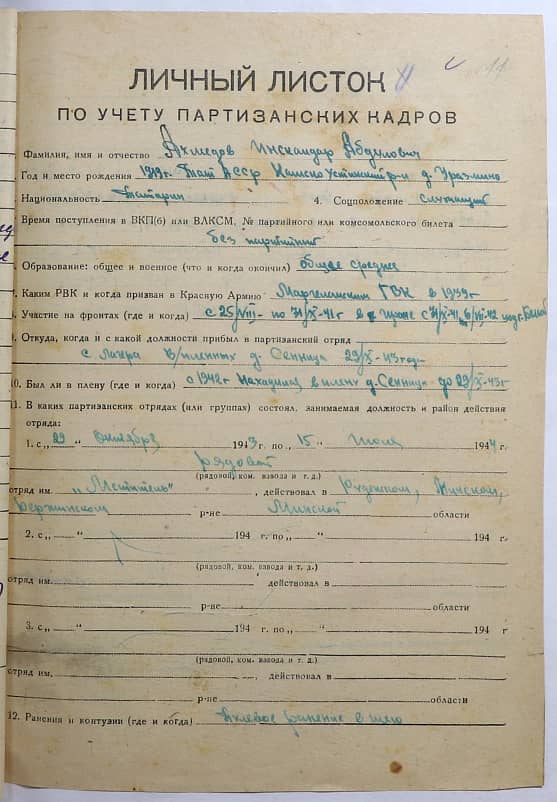 11
ЛИЧНЫЙ ЛИСТОК
ПО УЧЕТУ ПАРТИЗАНСКИХ КАДРОВ
Фамилия, имя и отчество Ахмедов Инскандар Абдулович
Год и место рождения 1919 г. Тат АССР Камско Устинский р-н д. Уразлино
Национальность татарин 4. Соцположение служащий
Время поступления в ВКП(б) или ВЛКСМ, № партийного или комсомольского билета
без партийный
Образование: общее и военное (что и когда окончил) общее среднее
Каким РВК и когда призван в Красную Армию Маргеланским ГВК в 1939 г
Участие на фронтах (где и когда) с 25/VIII - по 31/X-41 г в
Откуда, когда и с какой должности прибыл в партизанский отряд
с лагеря в/пленных д. Сенница 29/X-43 года
0. Был ли в плену (где и когда) с 1942 г находился в плену д. Сенница до 29/X-43 г
11. В каких партизанских отрядах (или группах) состоял, занимаемая должность и район действия
отряда:
1. с „29 “ октября 1943 г. по „ 15 “ июля 1944 г.
рядовой
(рядовой, ком. взвода и т. д.)
отряд им. „Мститель“, действовал в Руденском, Минском,
р-не Минской области
2. с „ “ 194 г. по „ “ 194 г.
(рядовой, ком. взвода и т. д.)
отряд им. действовал в
р-не области
3. с „ “ 194 г. по „ “ 194 г.
(рядовой, ком. взвода и т. д.)
отряд им. , действовал в
р-не области
12. Ранения и контузии (где и когда) ранение в шею